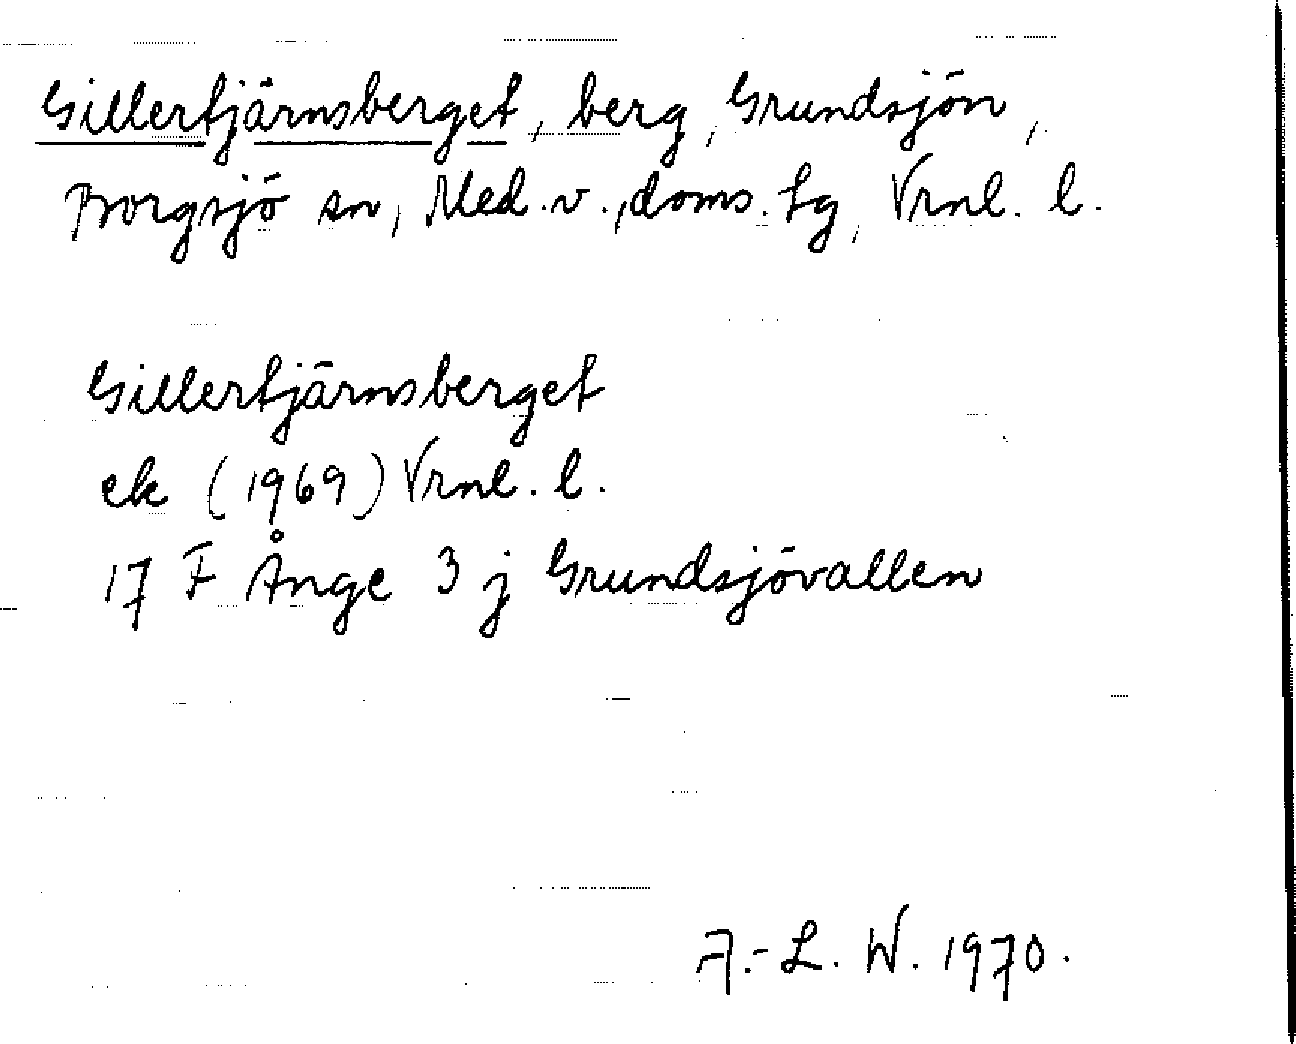 Gillertjärnsberget, berg, Grundsjön,
Borgsjö sn, Med. v., doms. tg, Vrnl. l.
Gillertjärnsberget
ek (1969) Vrnl. l.
17 F Ånge 3 j Grundsjövallen
A.-L. W. 1970.